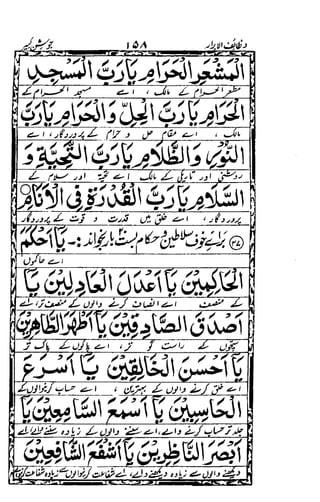 وظائف الابرار ۱۵۸ جوشن کبیر
الْمَشْعَرِ الْحَرَامِ يَا رَبَّ الْمَسْجِدِ
مشعر الحرام کے مالک ، اے مسجد الحرام کے
الْحَرَامِ يَا رَبَّ الْحِلِّ وَالْحَرَامِ يَا رَبَّ
مالک ، اے مقام حل و حرام کے پروردگار، اے
النُّوْرِ وَالظَّلَامِ يَا رَبَّ التَّحِيَّةِ وَ
روشنی اور تاریکی کے مالک اے تحیۃ اور سلام کے
السَّلَامِ يَا رَبَّ الْقُدْرَةِ فِي الْاَنَامِ
پروردگار ، اے خلق میں قدرت و قوت کے پروردگار
(۳۷) برائے خوف سلاطین و حکام بست ۲۰ بار بخواند :۔ يَا اَحْكَمَ
اے حاکموں
الْحَاكِمِيْنَ يَا اَعْدَلَ الْعَادِلِيْنَ يَا
کے منصف اے انصاف کرنے والوں کے منصف تر، اے
اَصْدَقَ الصَّادِقِيْنَ يَا اَطْهَرَ الطَّاهِرِيْنَ
سچوں کے راست گو تر، اے پاکوں کے پاک تر
يَا اَحْسَنَ الْخَالِقِيْنَ يَا اَسْرَعَ
اے خلق کرنے والوں کے بہترین ، اے حساب کرنیوالوں کے
الْحَاسِبِيْنَ يَا اَسْمَعَ السَّامِعِيْنَ يَا
جلد تر حساب کرنے والے، اے سننے والوں کے زیادہ سننے والے، اے
اَبْصَرَ النَّاظِرِيْنَ يَا اَشْفَعَ الشَّافِعِيْنَ
دیکھنے والوں سے زیادہ دیکھنے والے، اے شفاعت کرنیوالوں سے زیادہ شفاعت کرنیوالے